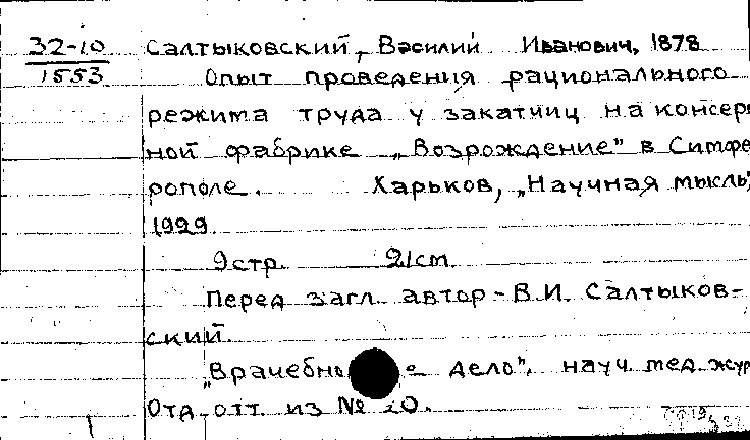 32-10
1553
Салтыковский, Василий Иванович, 1878
Опыт проведения рационального
режима труда у закатчиц на консерв
ной фабрике „Возрождение" в Симфе
рополе. Харьков, „Научная мысль",
1929.
9 стр. 21 cm
Перед загл. автор - В.И. Салтыков-
ский.
„Врачебно дело", науч. мед. жур
Отд. отт. из № 20.